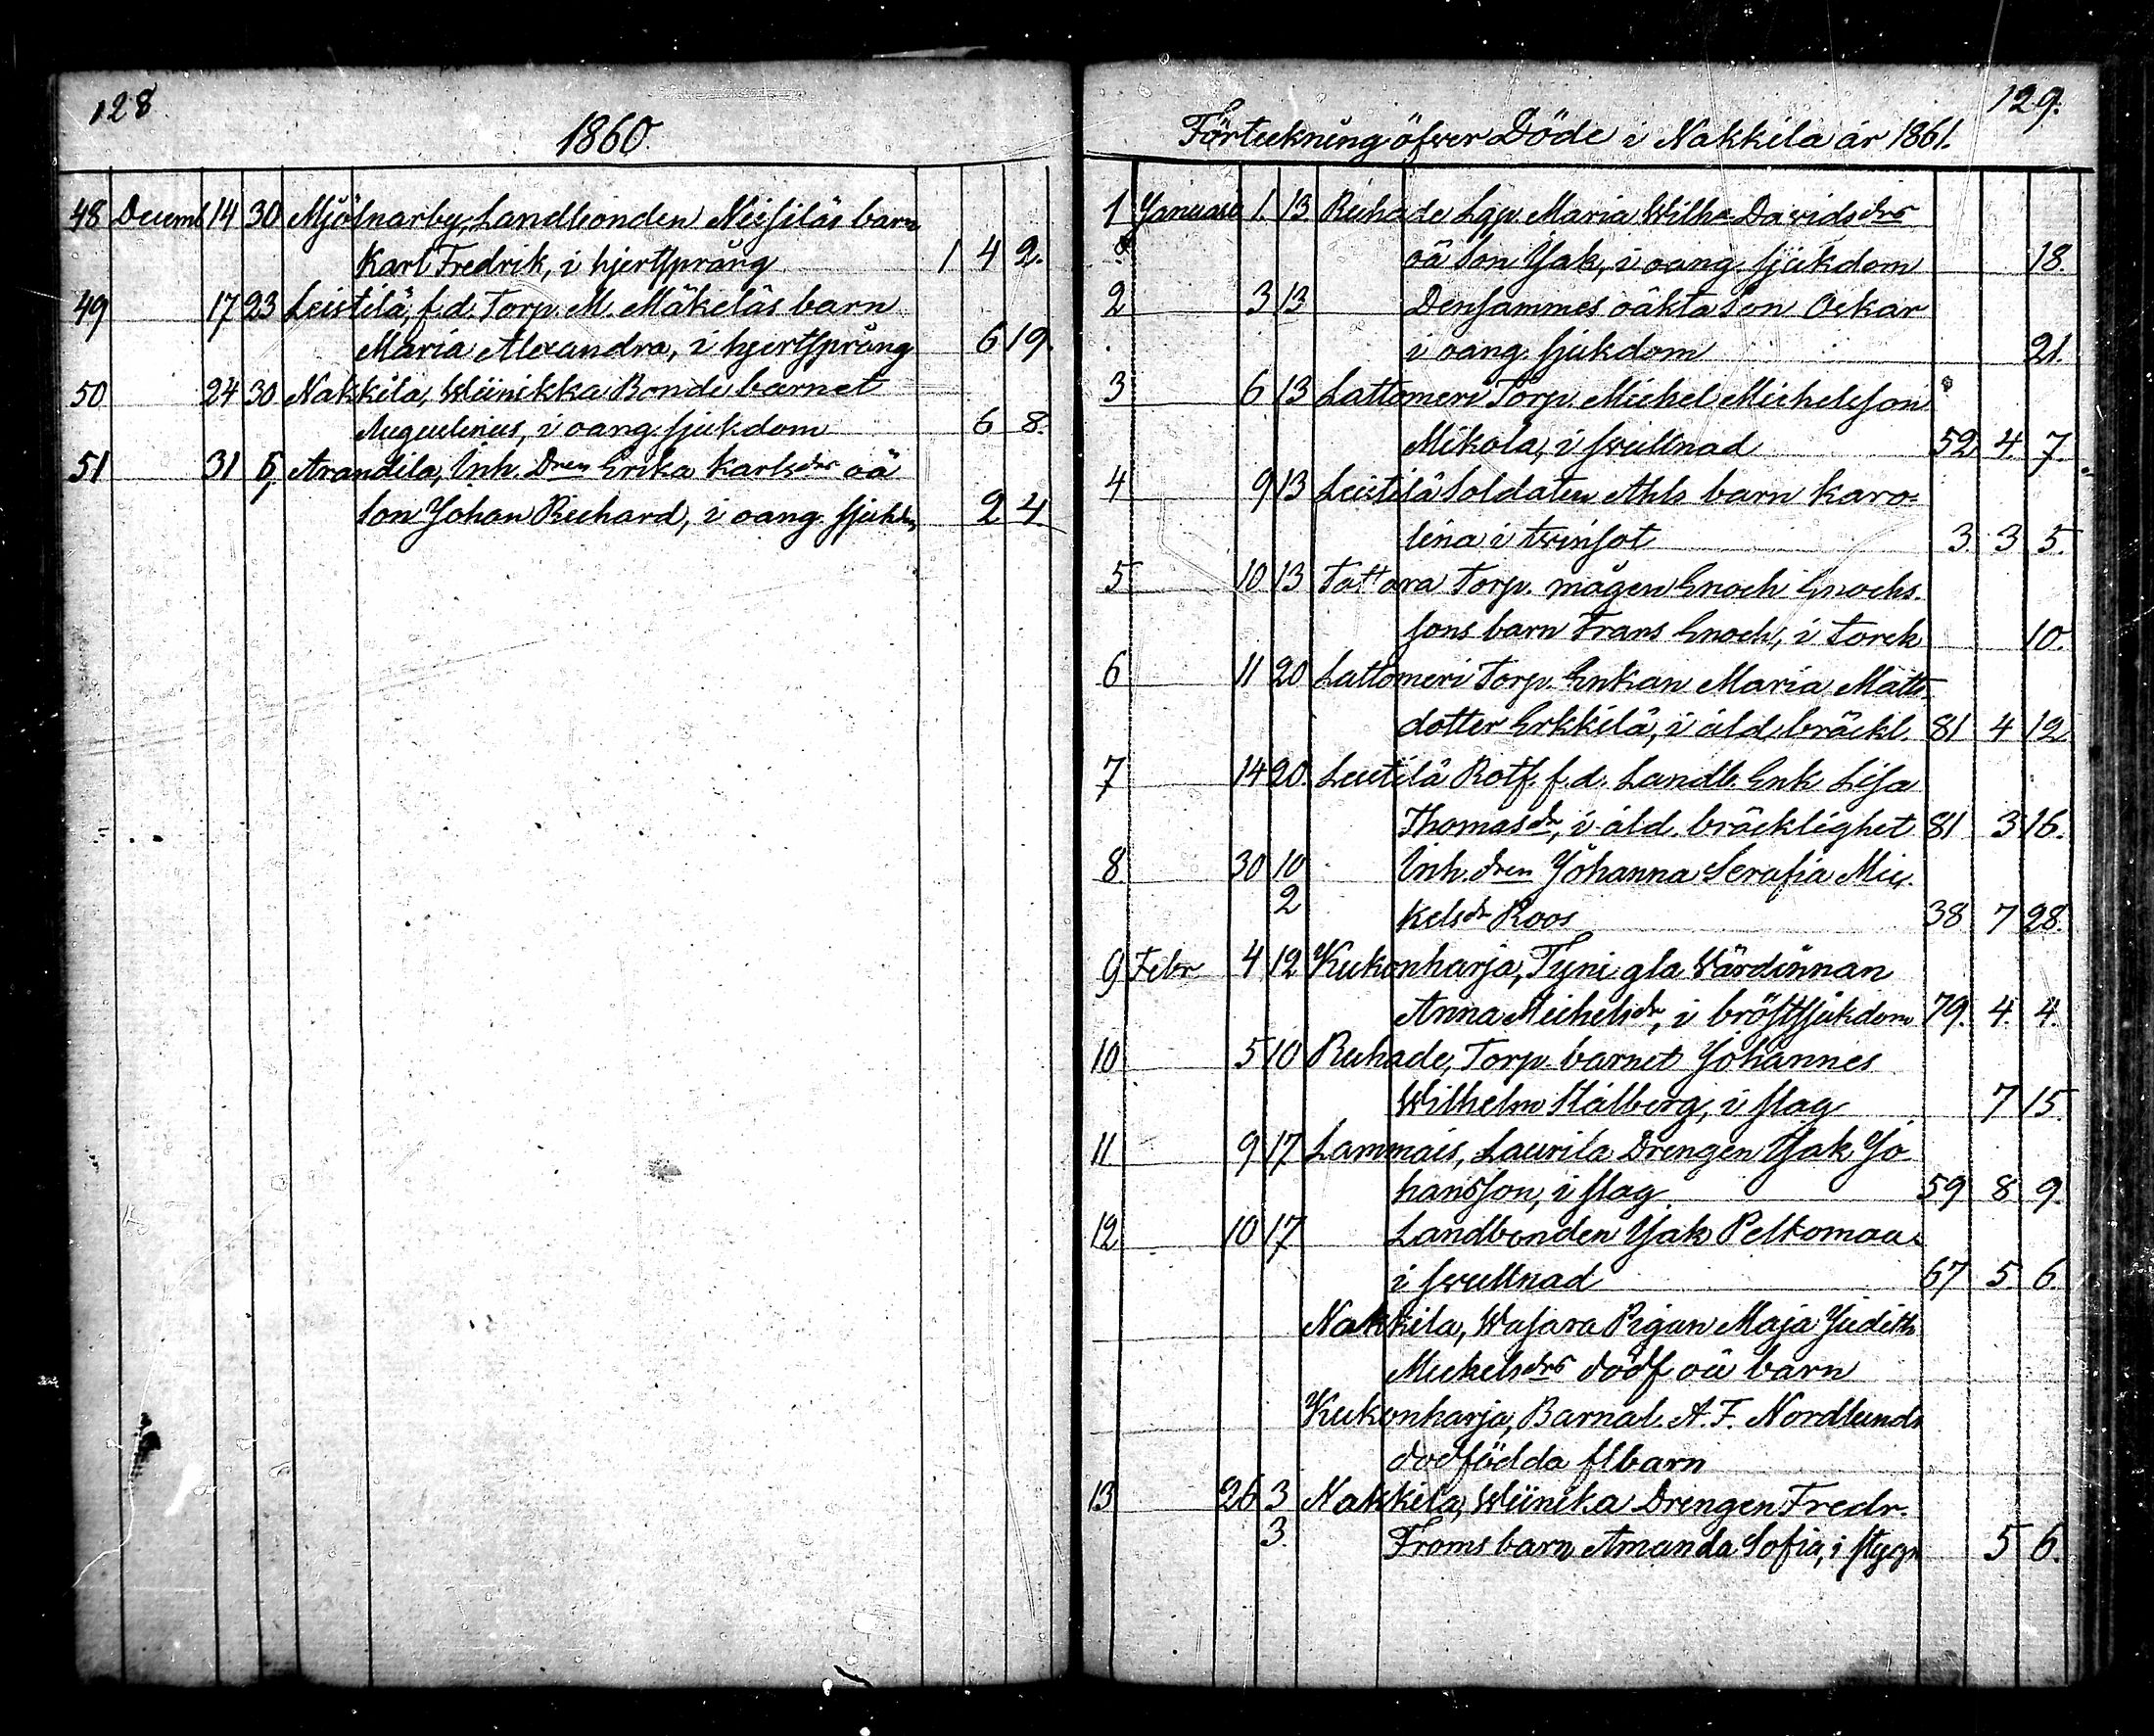 128.
1860.
48 Decemb 14 30 Mjölnarby, Landbonden Neisiläs barn
Karl Fredrik, i hjertsprång 1 4 2.
49 17 23 Leistilä, f.d. Torp. M. Mäkeläs barn
Maria Alexandra, i hjertsprång 6 19.
50 24 30 Nakkila, Wiinikka Bonde barnet
Augustinus, i oang. sjukdom 6 8.
51 31 6 Arandila, Inh. Dren Erika Karlsdrs oä
son Johan Richard, i oang. sjukdm 2 4
129.
Förteckning öfver Döde i Nakkila år 1861.
1 Januari 1. 13 Ruhade Lgp. Maria Wilha Davidsdrs
oä son Isak, i oang. sjukdom 18.
2 3 13 Densammes oäkta son Oskar
i oang. sjukdom 21.
3 6 13 Lattomeri Torp. Michel Michelsson
Mikola, i svullnad 52 4. 7.
4 9 13 Leistilä Soldaten Ahls barn Karo=
lina i tvinsot 3. 3 5.
5 10 13 Tattara Torp. mågen Enoch Enochs.
sons barn Frans Enoch, i torsk 10.
6 11 20 Lattomeri Torp. Enkan Maria Matts-
dotter Erkkilä, i åld. bräckl. 81 4 12
7 14 20. Leistilä Rotf. f.d. Landb. Enk Lisa
Thomasdr, i åld. bräcklighet 81 3 16.
8 30 10 Inh. dren Johanna Serafia Mic.
2 kelsdr Roos 38 7 28.
9 Febr 4 12 Kukonharja, Tyni gla Värdinnan
Anna Michelsdr, i bröstsjukdom 79. 4. 4.
10 5 10 Ruhade, Torp. barnet Johannes
Wilhelm Stålberg, i slag 7 15
11 9 17 Lammais, Laurila Drengen Isak Jo
hansson, i slag 59 8 9.
12 10 17 Landbonden Isak Peltomaa
i svullnad 67 5. 6.
Nakkila, Wasara Pigan Maja Judith
Mickelsdrs dödf oä barn
Kukonharja, Barnal. A. F. Nordlunds
dödfödda flbarn
13 26 3 Nakkila, Wiinika Drengen Fredr.
3. Froms barn Amanda Sofia, i stygn 5 6.